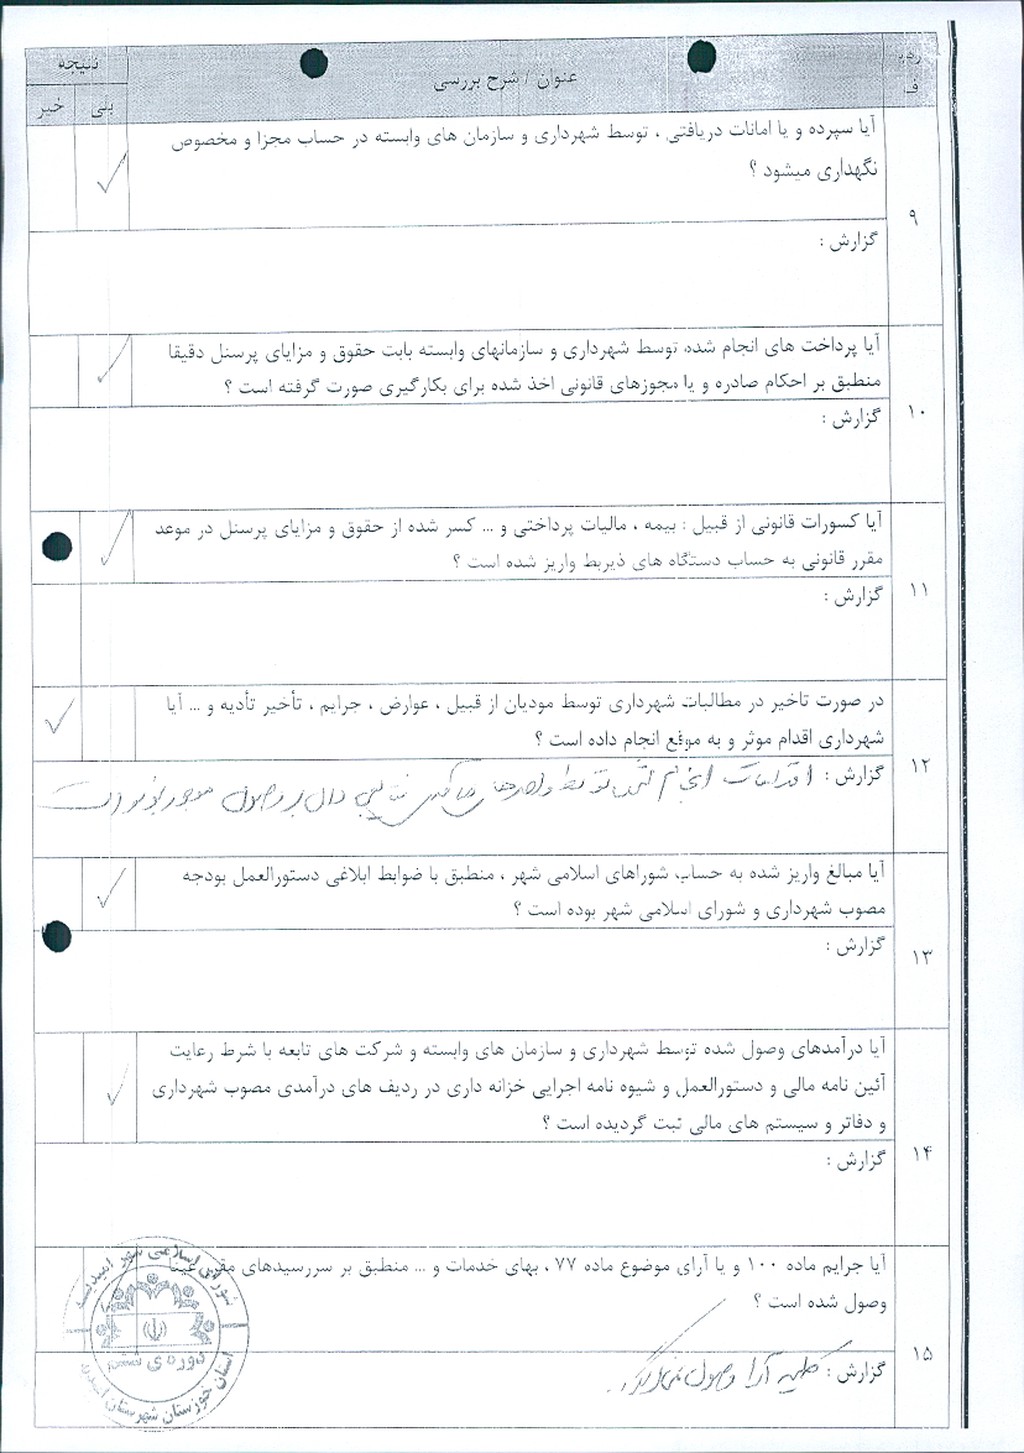 ردیف
عنوان / شرح بررسی
نتیجه
بلی
خیر
۹
آیا سپرده و یا امانات دریافتی ، توسط شهرداری و سازمان های وابسته در حساب مجزا و مخصوص
نگهداری میشود ؟
گزارش :
۱۰
آیا پرداخت های انجام شده توسط شهرداری و سازمانهای وابسته بابت حقوق و مزایای پرسنل دقیقا
منطبق بر احکام صادره و یا مجوزهای قانونی اخذ شده برای بکارگیری صورت گرفته است ؟
گزارش :
۱۱
آیا کسورات قانونی از قبیل : بیمه ، مالیات پرداختی و ... کسر شده از حقوق و مزایای پرسنل در موعد
مقرر قانونی به حساب دستگاه های ذیربط واریز شده است ؟
گزارش :
۱۲
در صورت تاخیر در مطالبات شهرداری توسط مودیان از قبیل ، عوارض ، جرایم ، تأخیر تأدیه و ... آیا
شهرداری اقدام موثر و به موقع انجام داده است ؟
گزارش : اقدامات انجام شده توسط واحدهای دال بر وصول
۱۳
آیا مبالغ واریز شده به حساب شوراهای اسلامی شهر ، منطبق با ضوابط ابلاغی دستورالعمل بودجه
مصوب شهرداری و شورای اسلامی شهر بوده است ؟
گزارش :
۱۴
آیا درآمدهای وصول شده توسط شهرداری و سازمان های وابسته و شرکت های تابعه با شرط رعایت
آئین نامه مالی و دستورالعمل و شیوه نامه اجرایی خزانه داری در ردیف های درآمدی مصوب شهرداری
و دفاتر و سیستم های مالی ثبت گردیده است ؟
گزارش :
۱۵
آیا جرایم ماده ۱۰۰ و یا آرای موضوع ماده ۷۷ ، بهای خدمات و ... منطبق بر سررسیدهای مقرر عینا
وصول شده است ؟
گزارش : کلیه آرا وصول
شورای اسلامی شهر
دوره ی ششم
استان خوزستان شهرستان